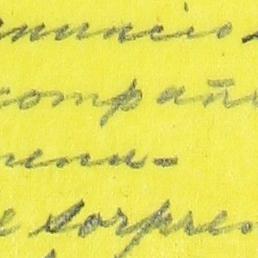 anuncio-
compañ
menu-
e sorpren